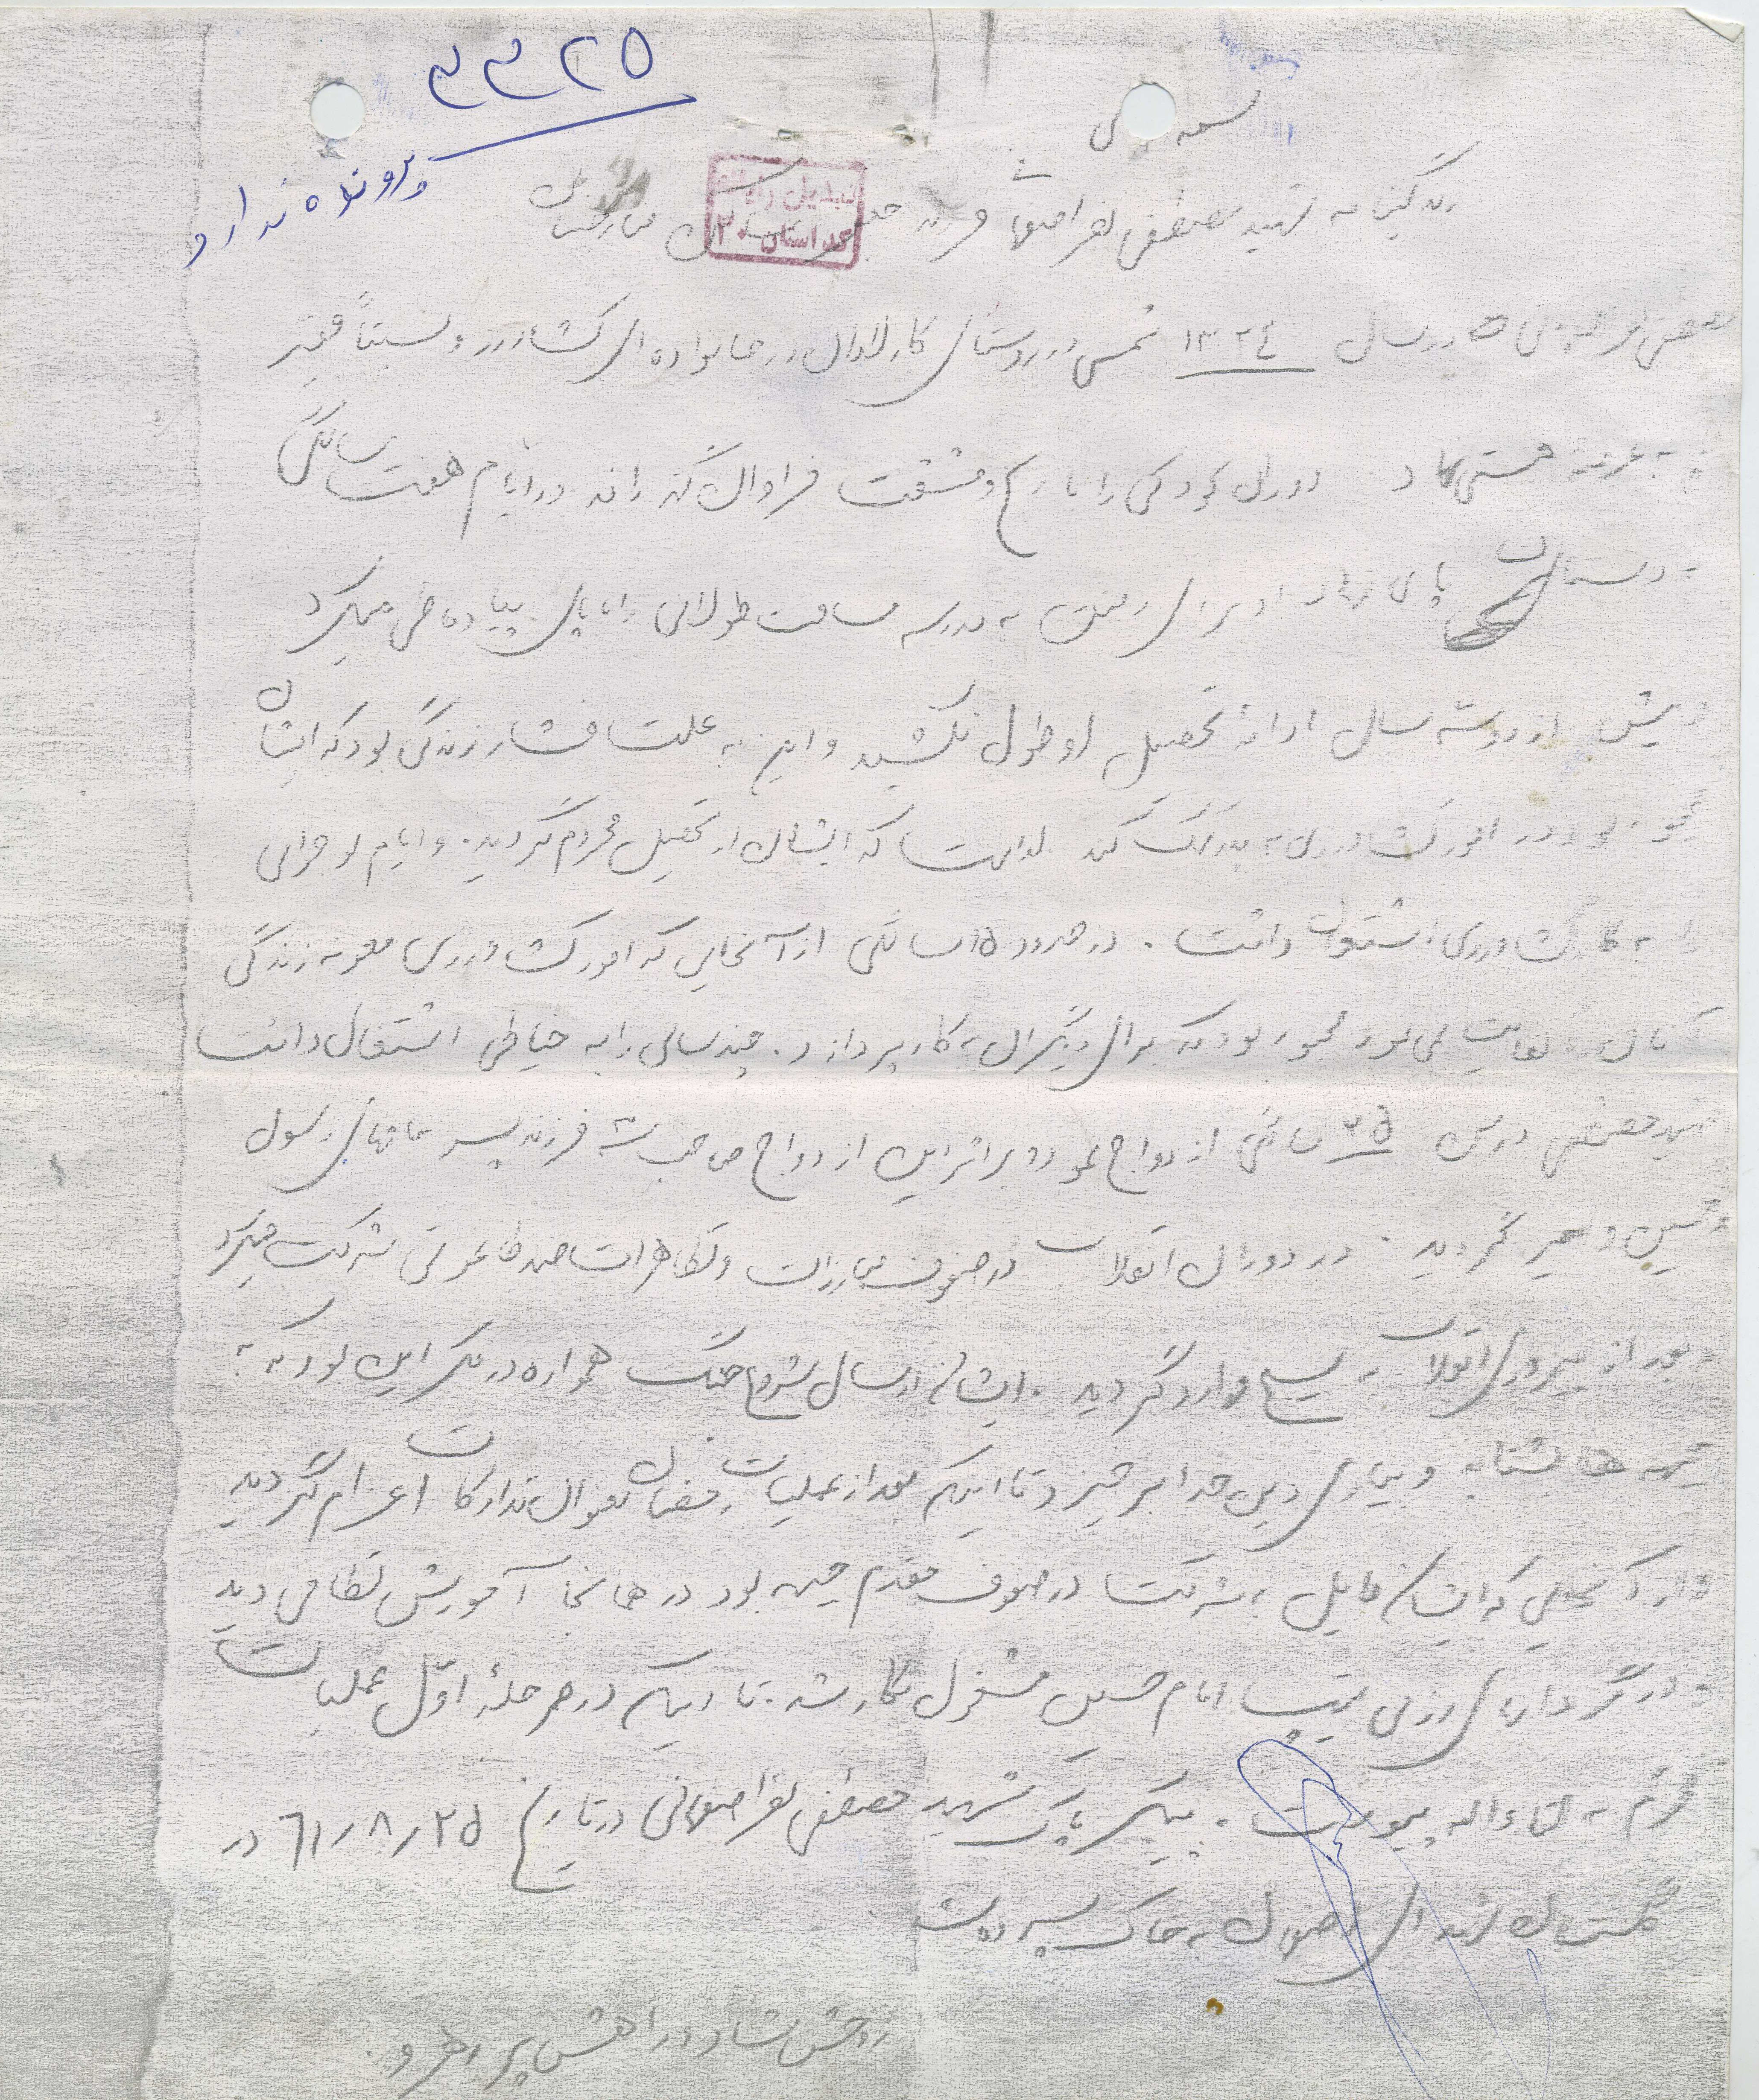 ۳۳۲۵
پرونده ندارد
بسمه تعالی
تبدیل رایانه
استان ۲۰
زندگینامه شهید مصطفی نفر اصفهانی فرزند
در سال ۱۳۲۴ شمسی در روستای کارلادان در خانواده ای کشاورز و نسبتاً فقیر
به عرصه هستی نهاد دوران کودکی را با رنج و مشقت فراوان گذراند در ایام هفت سالگی
به دبستان پای نهاد او برای رفتن به مدرسه مسافت طولانی را با پای پیاده طی میکرد
و بیش از دو سه سال ادامه تحصیل او طول نکشید و این به علت فشار زندگی بود که ایشان
مجبور بود در امور کشاورزی به پدر کمک کند لذاست که ایشان از تحصیل محروم گردید. و ایام نوجوانی
را به کار کشاورزی اشتغال داشت. در حدود ۱۵ سالگی از آنجایی که امور کشاورزی معونه زندگی
کفایت نمی نمود مجبور بود که برای دیگران به کار پردازد. چند سالی را به خیاطی اشتغال داشت
شهید مصطفی در سن ۲۵ سالگی ازدواج نمود و بر اثر این ازدواج صاحب سه فرزند پسر بنامهای رسول
و حسین و گردید. در دوران انقلاب در صفوف مبارزات و تظاهرات ضد طاغوتی شرکت میکرد
و بعد از پیروزی انقلاب به بسیج وارد گردید. ایشان از سال شروع جنگ همواره در فکر این بود که به
جبهه ها بشتابد و بیاری دین خدا برخیزد تا اینکه بعد از عملیات رمضان بعنوان تدارکات اعزام گردید
و از آنجایی که ایشان مایل به شرکت در صفوف مقدم جبهه بود در همانجا آموزش نظامی دید
و در گردانهای رزمی تیپ امام حسین مشغول بکار شد. تا اینکه در مرحله اول عملیات
محرم به لقاء الله پیوست. پیکر پاک شهید مصطفی نفر اصفهانی در تاریخ ۶۱/۸/۲۵ در
گلستان شهدای اصفهان به خاک سپرده شد
روحش شاد و راهش پر رهرو.